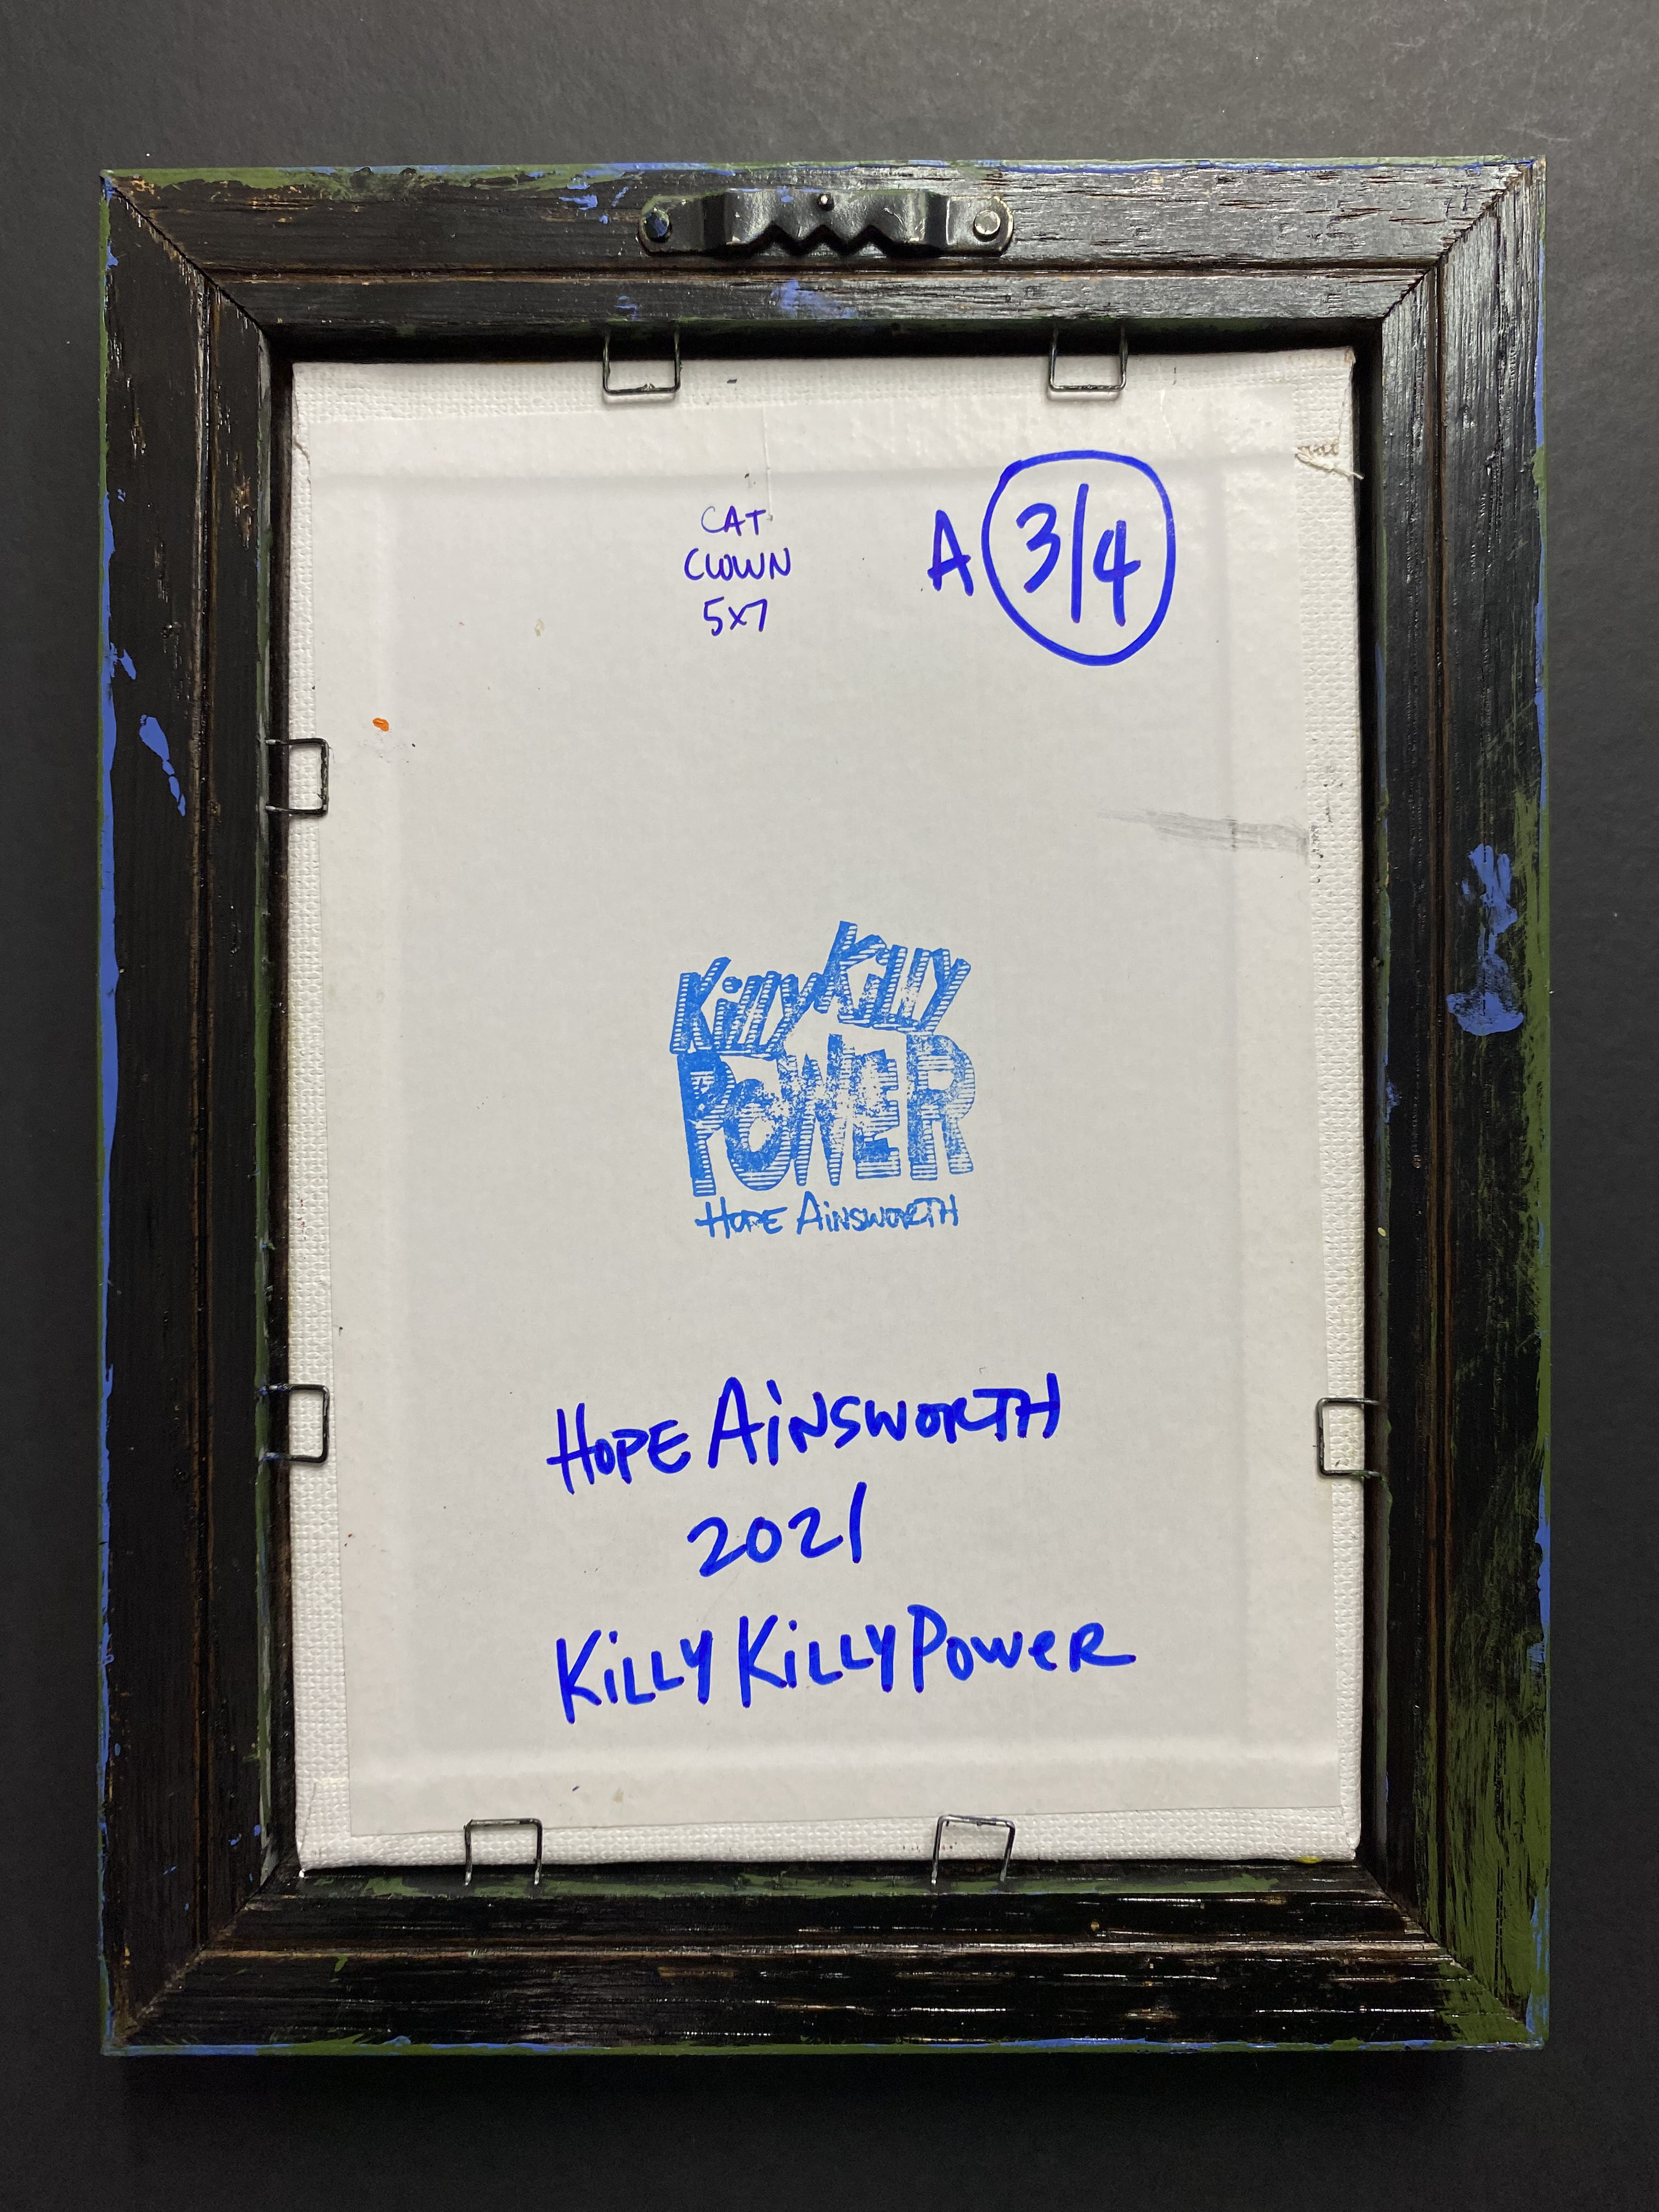 CAT
CLOWN
5x7
A 3/4
Killy Killy
POWER
HOPE AiNSWORTH
HOPE AiNSWORTH
2021
KiLLY KiLLY POWeR